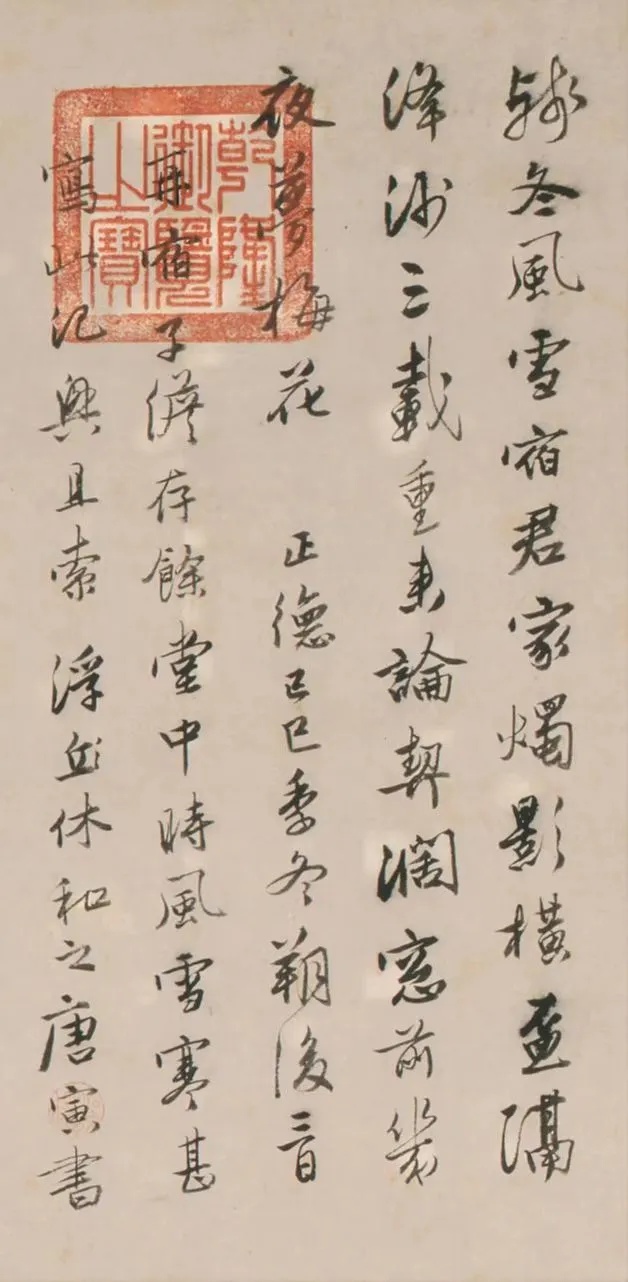 殘冬風雪宿君家燭影橫盃隔
絳紗三載重來論契濶窓前幾
夜夢梅花 正德己巳季冬朔後三日
再宿子儋存餘堂中時風雪寒甚
寫此紀興且索 浮丘休和之唐寅書
乾隆御覽之寶